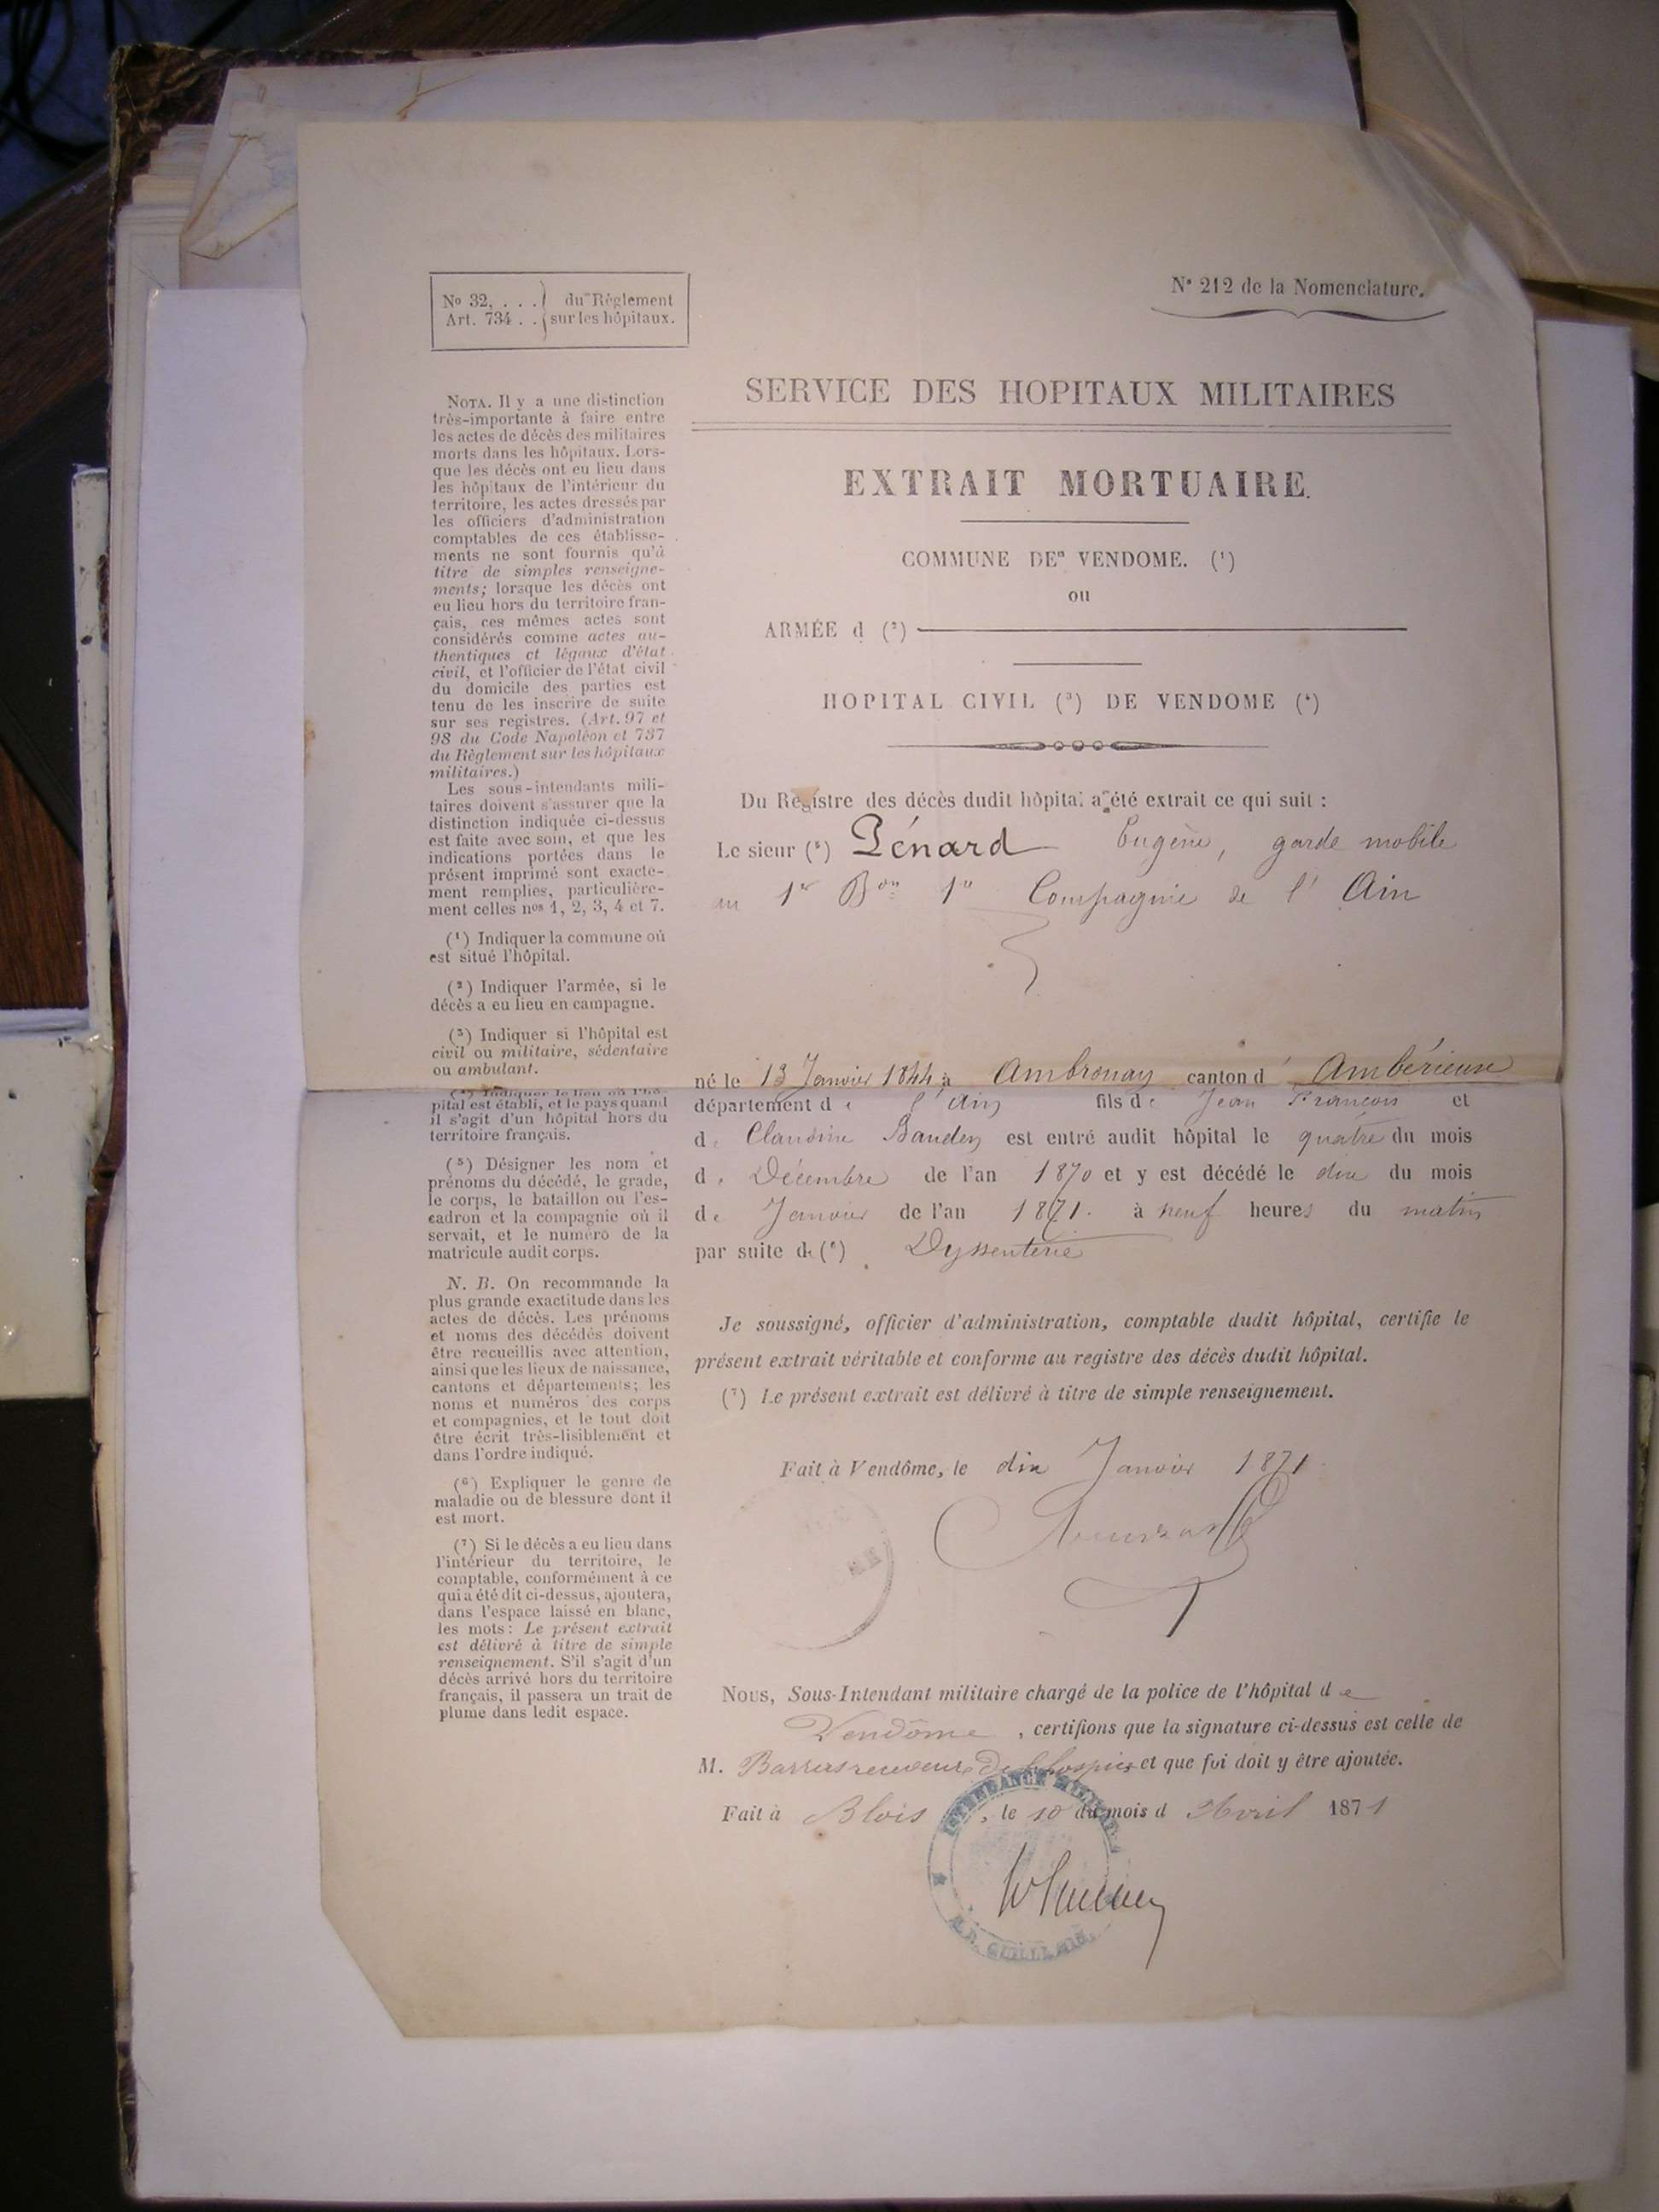 No 32, . . . du Règlement
Art. 734 . . sur les hôpitaux.
N° 212 de la Nomenclature.
SERVICE DES HOPITAUX MILITAIRES
EXTRAIT MORTUAIRE.
COMMUNE DE VENDOME. (1)
ou
ARMÉE d (2)
HOPITAL CIVIL (3) DE VENDOME (4)
Du Registre des décès dudit hôpital a été extrait ce qui suit :
Le sieur (5) Pénard Eugène, garde mobile
au 1er Bon 1re Compagnie de l'Ain
né le 13 Janvier 1844 à Ambronay canton d' Ambérieuse
département de l'Ain fils de Jean François et
de Claudine Bauden est entré audit hôpital le quatre du mois
de Décembre de l'an 1870 et y est décédé le dix du mois
de Janvier de l'an 1871. à neuf heures du matin
par suite de (6) Dyssenterie
Je soussigné, officier d'administration, comptable dudit hôpital, certifie le
présent extrait véritable et conforme au registre des décès dudit hôpital.
(7) Le présent extrait est délivré à titre de simple renseignement.
Fait à Vendôme, le dix Janvier 1871
Nous, Sous-Intendant militaire chargé de la police de l'hôpital de
Vendôme, certifions que la signature ci-dessus est celle de
M. receveur de l'hospice et que foi doit y être ajoutée.
Fait à Blois, le 10 du mois d Avril 1871
INTENDANCE MILITAIRE
GUILLEMIN
NOTA. Il y a une distinction
très-importante à faire entre
les actes de décès des militaires
morts dans les hôpitaux. Lors-
que les décès ont eu lieu dans
les hôpitaux de l'intérieur du
territoire, les actes dressés par
les officiers d'administration
comptables de ces établisse-
ments ne sont fournis qu'à
titre de simples renseigne-
ments; lorsque les décès ont
eu lieu hors du territoire fran-
çais, ces mêmes actes sont
considérés comme actes au-
thentiques et légaux d'état
civil, et l'officier de l'état civil
du domicile des parties est
tenu de les inscrire de suite
sur ses registres. (Art. 97 et
98 du Code Napoléon et 737
du Règlement sur les hôpitaux
militaires.)
Les sous-intendants mili-
taires doivent s'assurer que la
distinction indiquée ci-dessus
est faite avec soin, et que les
indications portées dans le
présent imprimé sont exacte-
ment remplies, particulière-
ment celles nos 1, 2, 3, 4 et 7.
(1) Indiquer la commune où
est situé l'hôpital.
(2) Indiquer l'armée, si le
décès a eu lieu en campagne.
(3) Indiquer si l'hôpital est
civil ou militaire, sédentaire
ou ambulant.
(4) Indiquer le lieu où l'hô-
pital est établi, et le pays quand
il s'agit d'un hôpital hors du
territoire français.
(5) Désigner les nom et
prénoms du décédé, le grade,
le corps, le bataillon ou l'es-
cadron et la compagnie où il
servait, et le numéro de la
matricule audit corps.
N. B. On recommande la
plus grande exactitude dans les
actes de décès. Les prénoms
et noms des décédés doivent
être recueillis avec attention,
ainsi que les lieux de naissance,
cantons et départements; les
noms et numéros des corps
et compagnies, et le tout doit
être écrit très-lisiblement et
dans l'ordre indiqué.
(6) Expliquer le genre de
maladie ou de blessure dont il
est mort.
(7) Si le décès a eu lieu dans
l'intérieur du territoire, le
comptable, conformément à ce
qui a été dit ci-dessus, ajoutera,
dans l'espace laissé en blanc,
les mots: Le présent extrait
est délivré à titre de simple
renseignement. S'il s'agit d'un
décès arrivé hors du territoire
français, il passera un trait de
plume dans ledit espace.